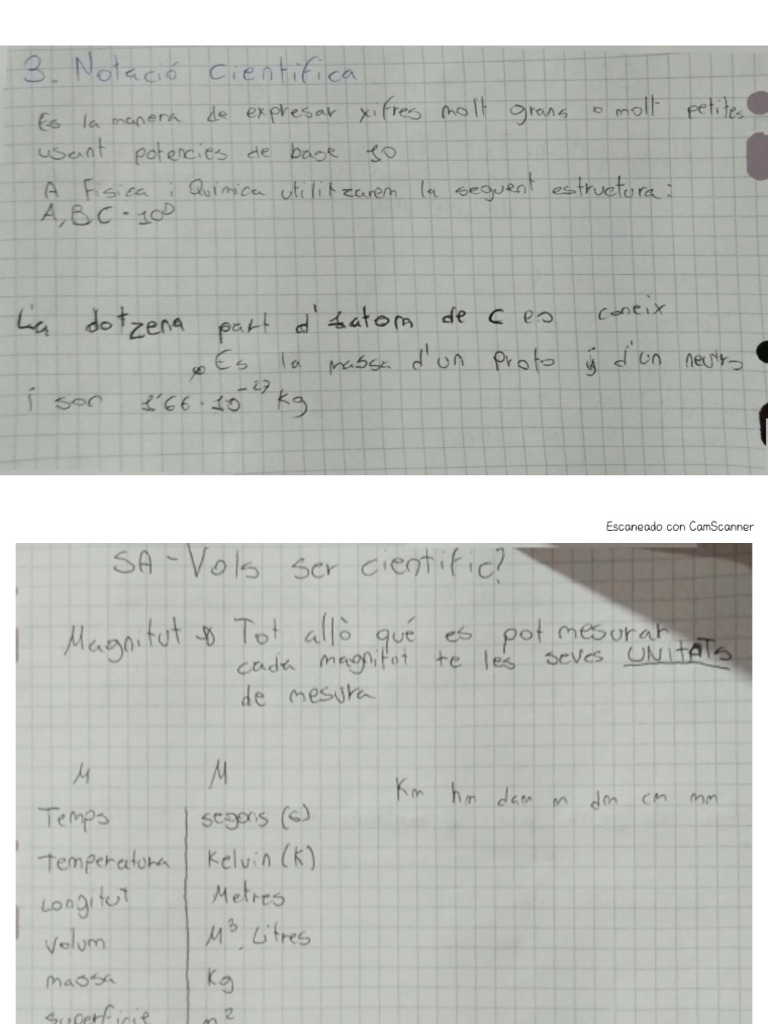 3. Notació cientifica
Es la manera de expresar xifres molt grans o molt petites
usant potencies de base 10
A Fisica i Quimica utilitzarem la seguent estructura:
A,BC · 10ᴰ
La dotzena part d' atom de C es coneix
Es la massa d'un proto y d'un neutro
i son 1'66 · 10⁻²⁷ Kg
Escaneado con CamScanner
SA - Vols ser cientific?
Magnitut Tot allò qué es pot mesurar
cada magnitut te les seves UNITATS
de mesura
M M
Km hm dam m dm cm mm
Temps segons (s)
Temperatura Kelvin (K)
Longitut Metres
Volum M³, Litres
massa Kg
superficie m²